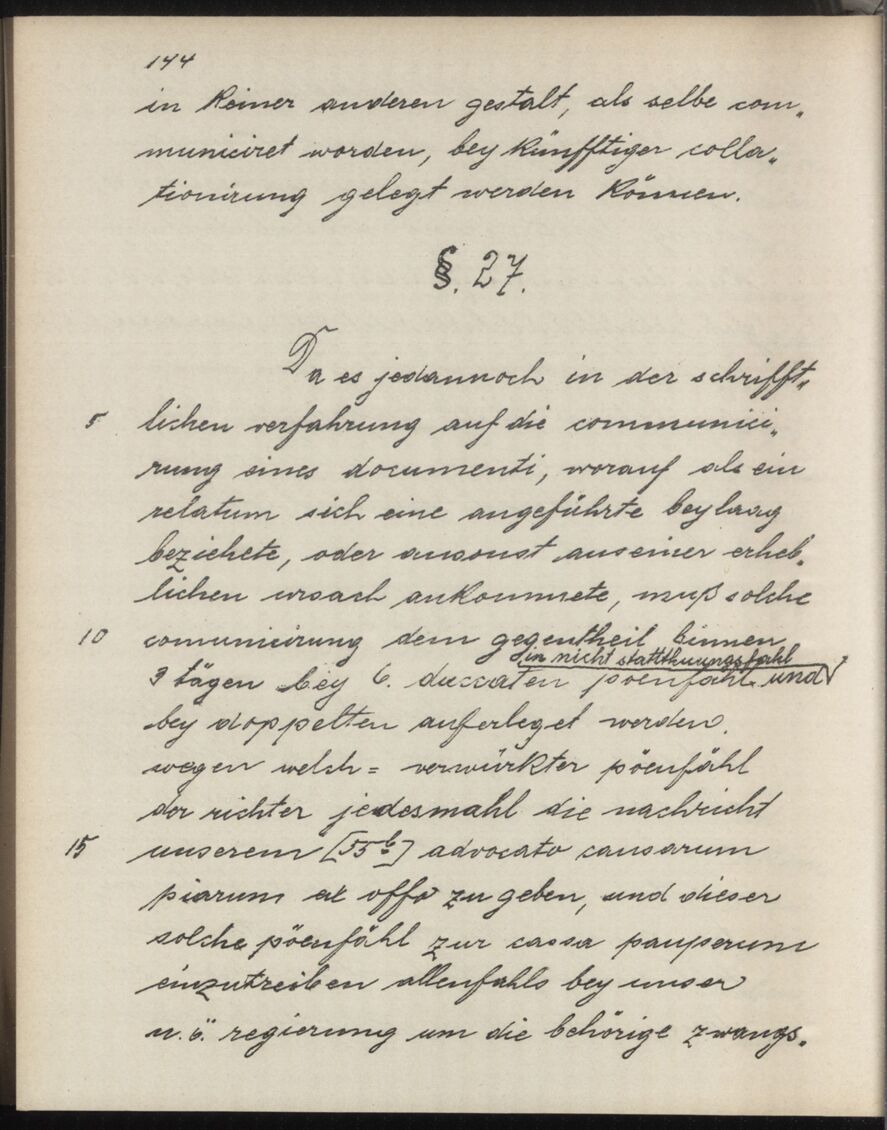 144
in keiner anderen gestalt, als selbe com„
municiret worden, bey künfftiger colla„
tionirung gelegt werden können.
§. 27.
Da es jedannoch in der schrifft„
5 lichen verfahrung auf die communici„
rung eines documenti, worauf als ein
relatum sich eine angeführte beylaag
beziehete, oder ansonst aus einer erheb„
lichen ursach ankommete, muß solche
10 comunicirung dem gegentheil binnen
in nicht stattthuungsfahl
3 tägen bey 6. duccaten pöenfähl und
bey doppelten auferleget werden.
wegen welch= verwürkter pöenfähl
der richter jedesmahl die nachricht
15 unserem [55b] advocato causarum
piarum ex offo zu geben, und dieser
solche pöenfähl zur cassa pauperum
einzutreiben allenfahls bey unser
n.ö. regierung um die behörige zwangs„